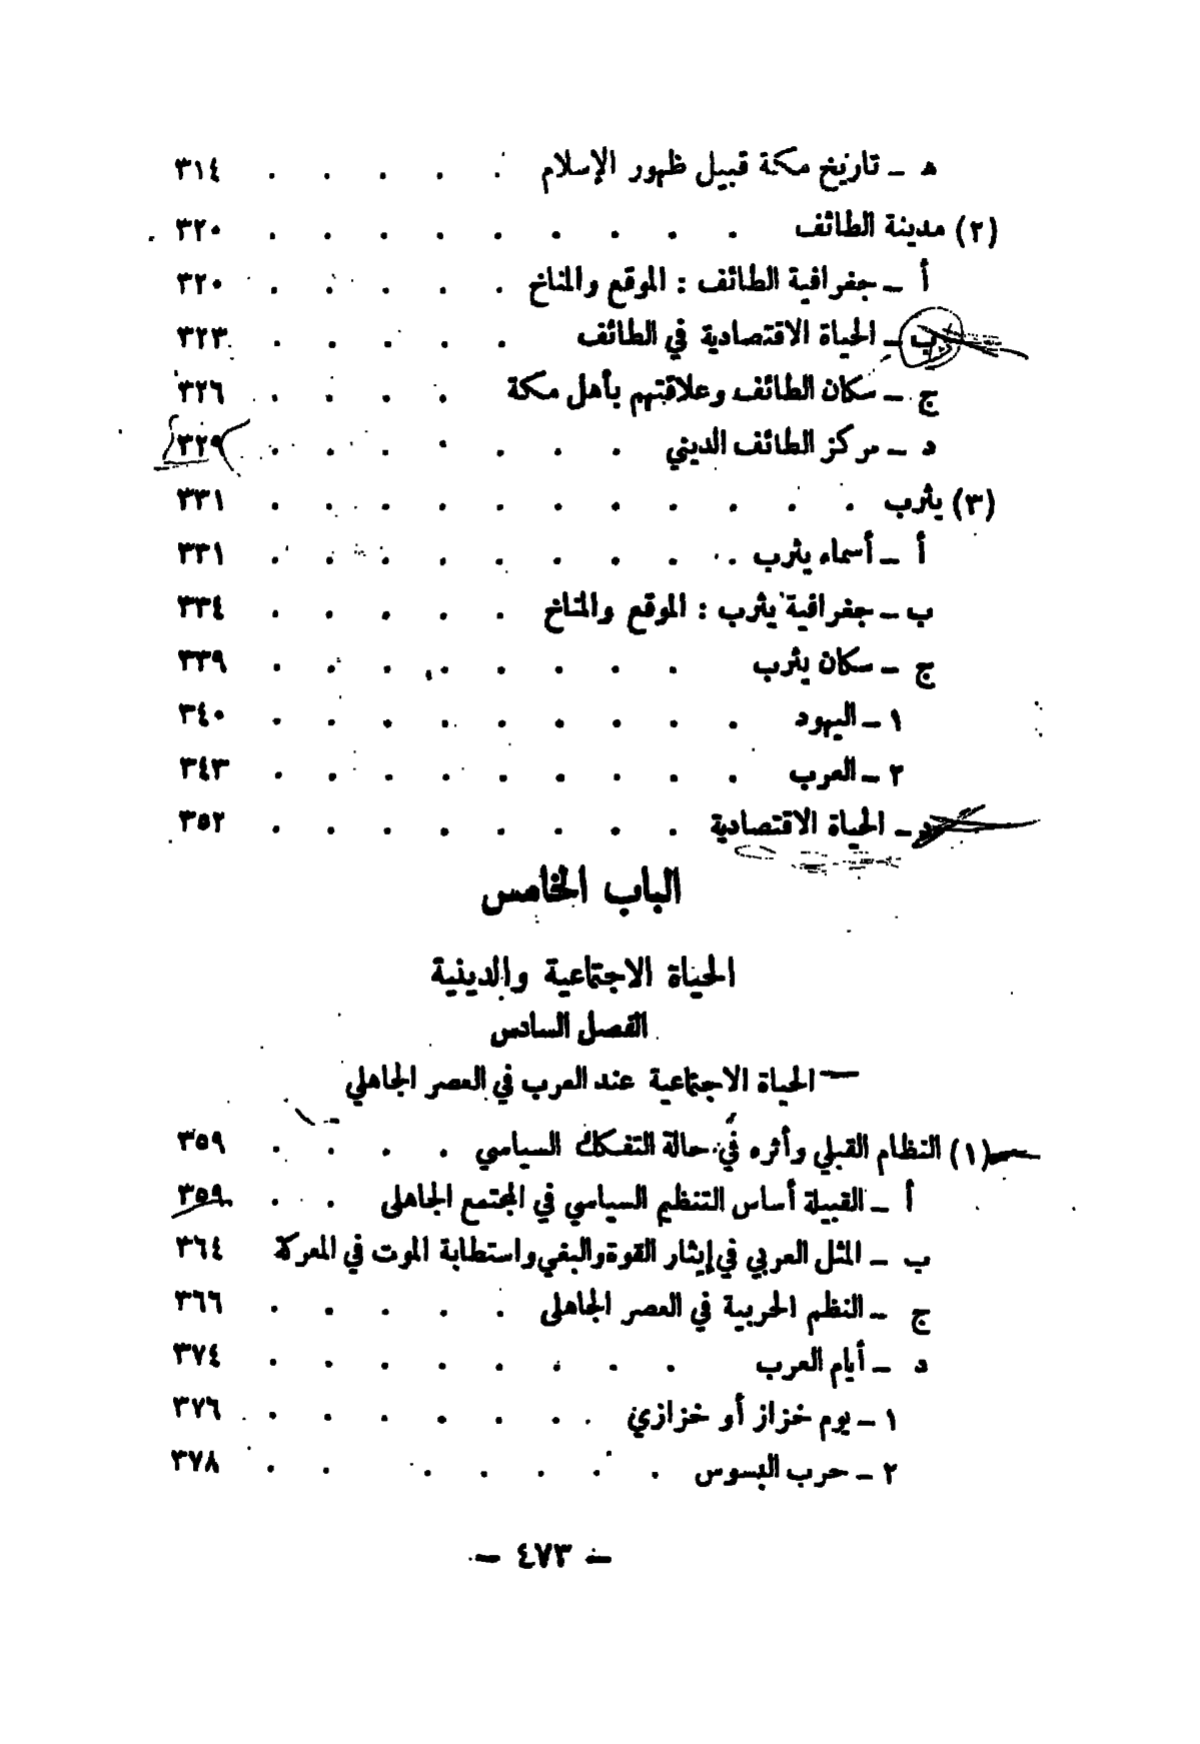 هـ ـ تاريخ مكة قبيل ظهور الإسلام . . . . . ٣١٤
(٢) مدينة الطائف . . . . . . . . . ٣٢٠
أ ـ جغرافية الطائف : الموقع والمناخ . . . . . ٣٢٠
ب ـ الحياة الاقتصادية في الطائف . . . . . ٣٢٣
ج ـ سكان الطائف وعلاقتهم بأهل مكة . . . . ٣٢٦
د ـ مركز الطائف الديني . . . . . . . ٣٢٩
(٣) يثرب . . . . . . . . . . . ٣٣١
أ ـ أسماء يثرب . . . . . . . . . ٣٣١
ب ـ جغرافية يثرب : الموقع والمناخ . . . . . ٣٣٤
ج ـ سكان يثرب . . . . . . . . ٣٣٩
١ ـ اليهود . . . . . . . . . ٣٤٠
٢ ـ العرب . . . . . . . . . ٣٤٣
د ـ الحياة الاقتصادية . . . . . . . . ٣٥٢
الباب الخامس
الحياة الاجتماعية والدينية
الفصل السادس
الحياة الاجتماعية عند العرب في العصر الجاهلي
(١) النظام القبلي وأثره في حالة التفكك السياسي . . . . ٣٥٩
أ ـ القبيلة أساس التنظيم السياسي في المجتمع الجاهلى . . ٣٥٩
ب ـ المثل العربي في إيثار القوة والبغي واستطابة الموت في المعركة ٣٦٤
ج ـ النظم الحربية في العصر الجاهلى . . . . . ٣٦٦
د ـ أيام العرب . . . . . . . . ٣٧٤
١ ـ يوم خزاز أو خزازي . . . . . . . ٣٧٦
٢ ـ حرب البسوس . . . . . . . ٣٧٨
ـ ٤٧٣ ـ